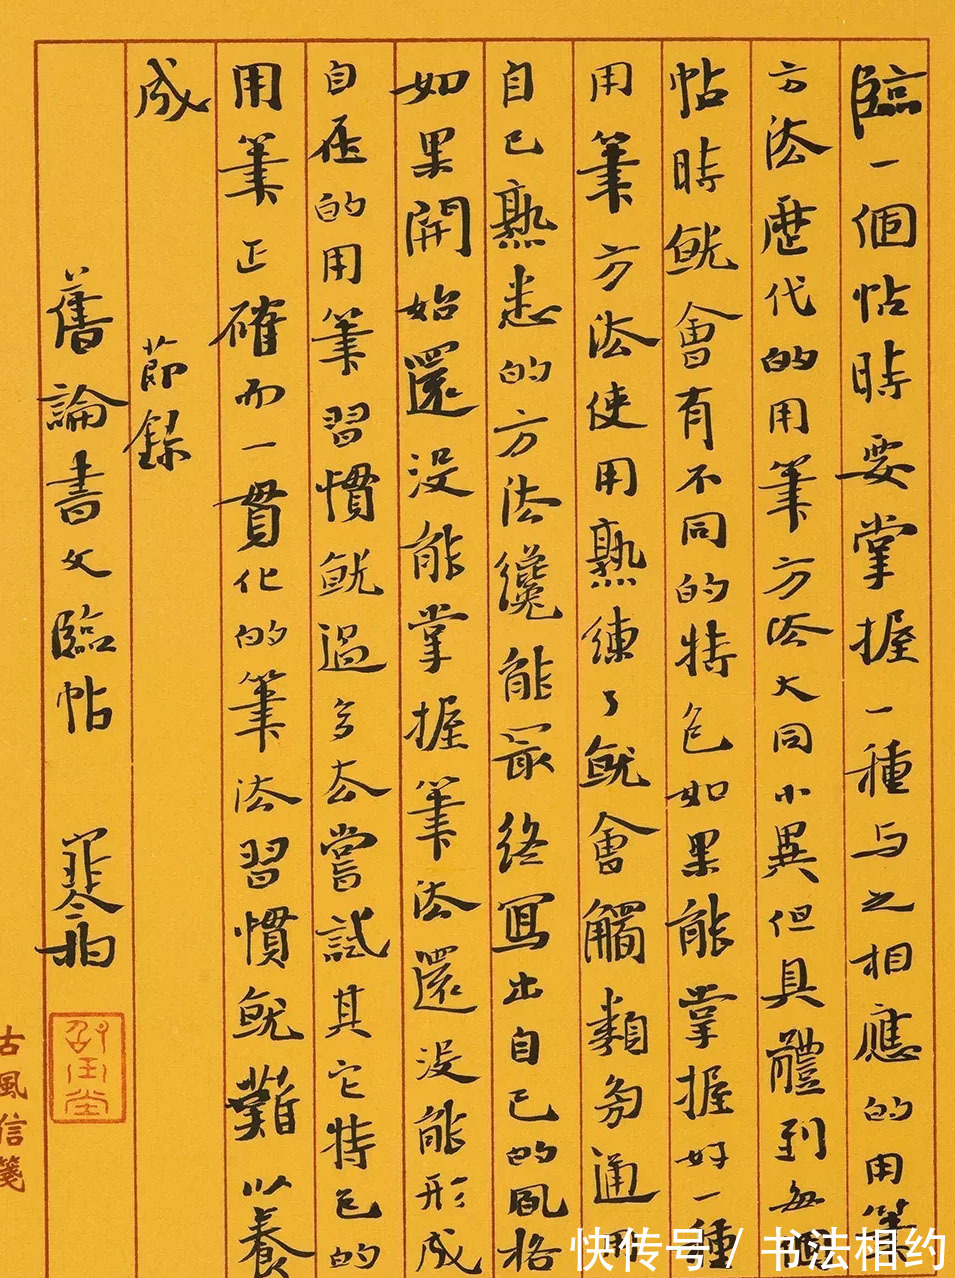 臨一個帖時要掌握一種与之相應的用筆
方法歷代的用筆方法大同小異但具體到每個
帖時就會有不同的特色如果能掌握好一種
用筆方法使用熟練了就會觸類旁通
自己熟悉的方法纔能最終寫出自己的風格
如果開始還没能掌握筆法還没能形成
自在的用筆習慣就過多去嘗試其它特色的
用筆正確而一貫化的筆法習慣就難以養
成 節錄
舊論書文臨帖
古風信箋
快传号 / 书法相约